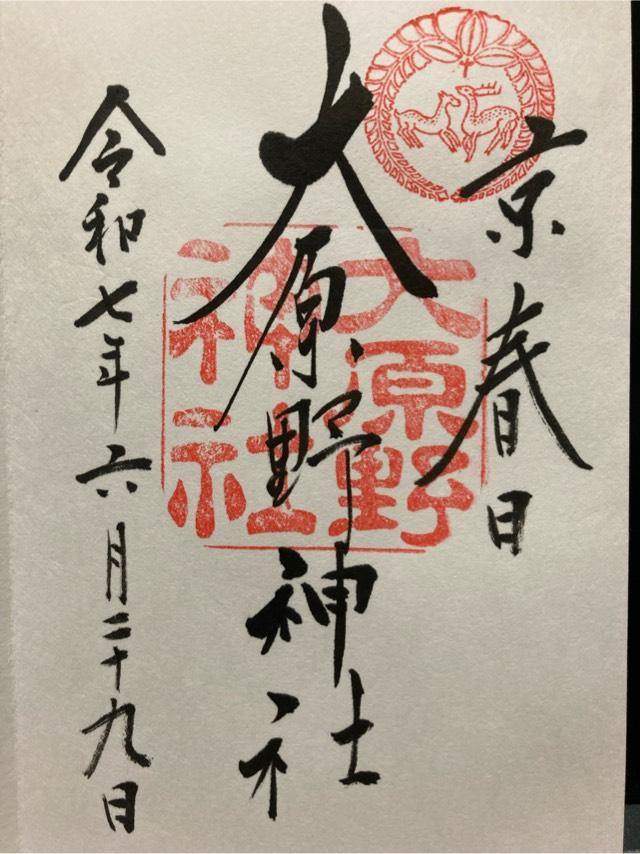 京春日
大原野神社
大原野
神社
令和七年六月二十九日